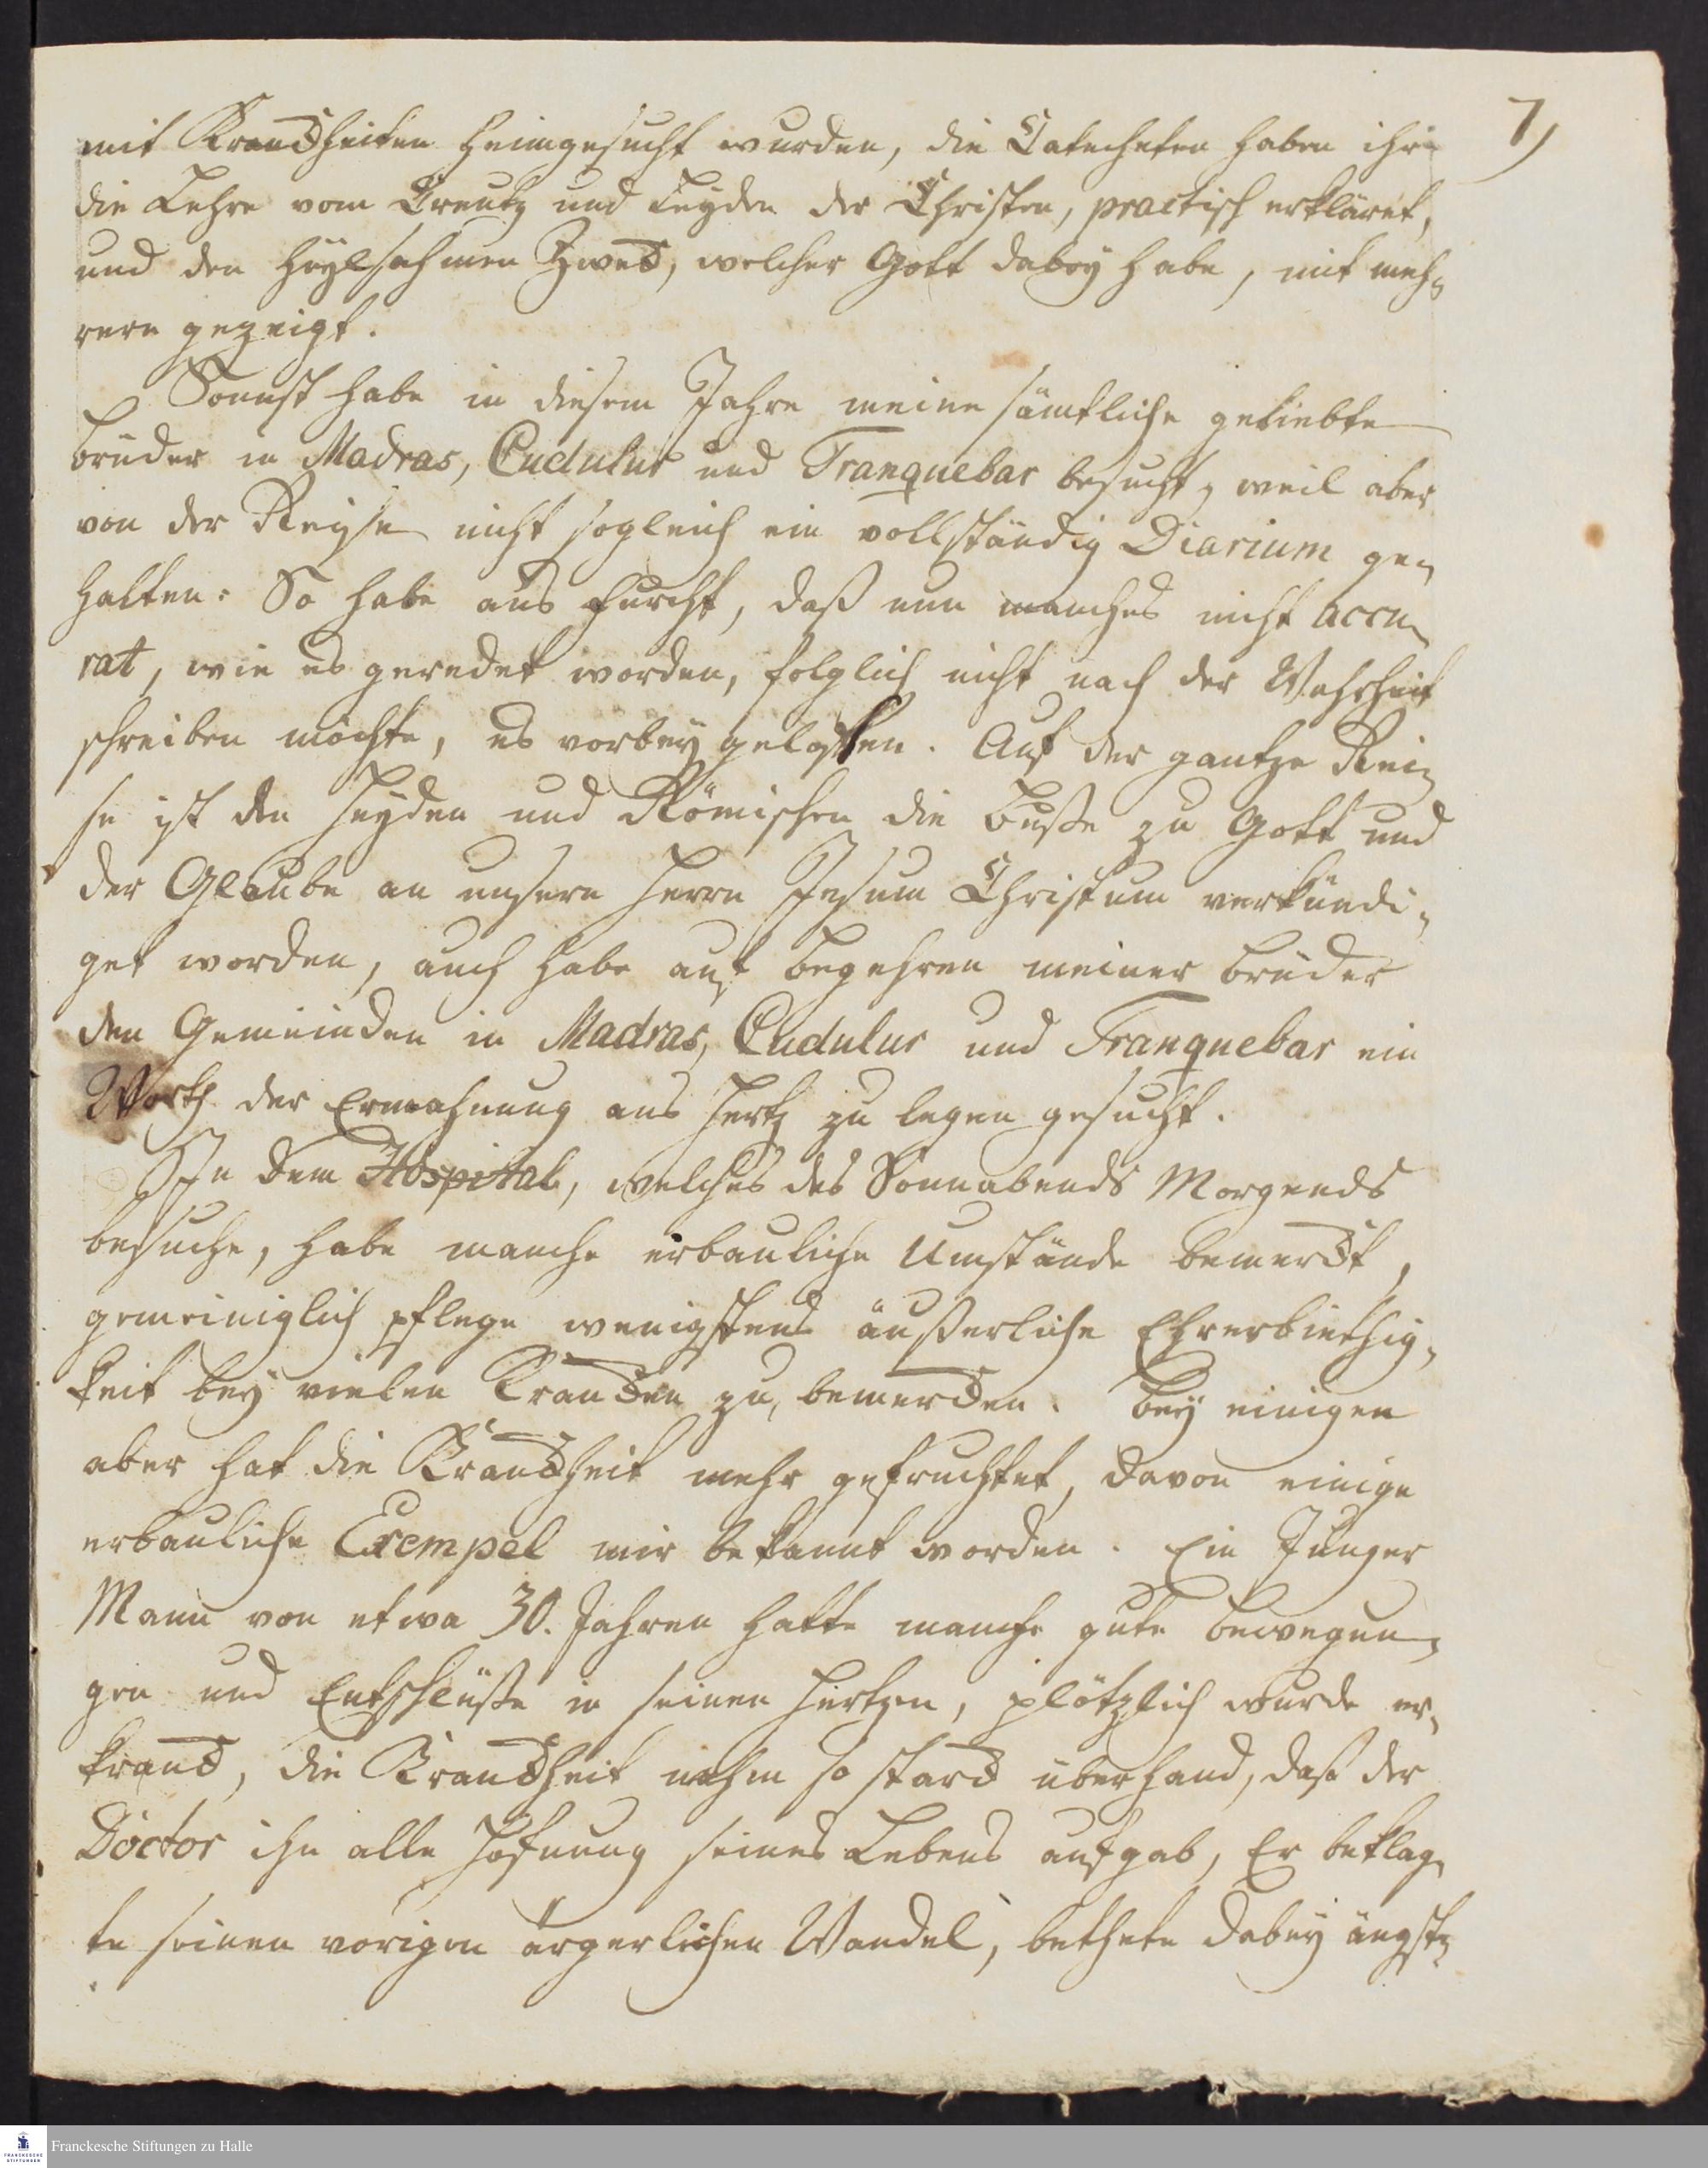 7,
mit Kranckheiten heimgesucht wurden, die Catecheten haben ihr
die Lehre vom Creutz und Leyden der Christen, practisch erkläret,
und den heylsahmen Zweck, welcher Gott dabey habe, mit meh-
rern gezeigt.
Sonnst habe in diesem Jahre meine sämtliche geliebte
brüder in Madras, Cudulur und Tranquebar besucht, weil aber
von der Reyse nicht sogleich ein vollständig Diarium ge-
halten: So habe aus furcht, daß nun manches nicht accu-
rat, wie es geredet worden, folglich nicht nach der Wahrheit
schreiben möchte, es vorbey gelaßen. Auf der gantze Rei-
se ist den Heyden und Römischen die Buße zu Gott und
der Glaube an unsern Herrn Jesum Christum verkündi-
get worden, auch habe auf begehren meiner brüder
den Gemeinden in Madras, Cudulur und Tranquebar ein
Worth der Ermahnung ans Hertz zu legen gesucht.
In dem Hospital, welches des Sonnabends Morgends
besuche, habe manche erbauliche Umstände bemerckt,
gemeiniglich pflege wenigstens äußerliche Ehrerbiethig-
keit bey vielen Krancken zu bemercken. Bey einigen
aber hat die Kranckheit mehr gefruchtet, davon einige
erbauliche Exempel mir bekannt worden. Ein Junger
Mann von etwa 30. Jahren hatte manche gute bewegun-
gen und Entschlüße in seinen Hertzen, plötzlich wurde er
kranck, die Kranckheit nahm so starck überhand, daß der
Doctor ihn alle Hofnung seines Lebens aufgab, Er beklag-
te seinen vorigen ärgerlichen Wandel, bethete dabey ängst-
Franckesche Stiftungen zu Halle